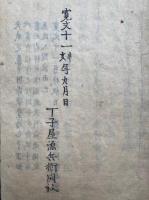 寛文十一辛亥年九月日
丁子屋源兵衛開板